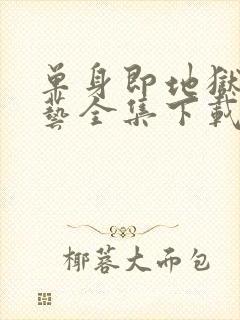 单身即地獄
藝全集下載
椰蓉大而包